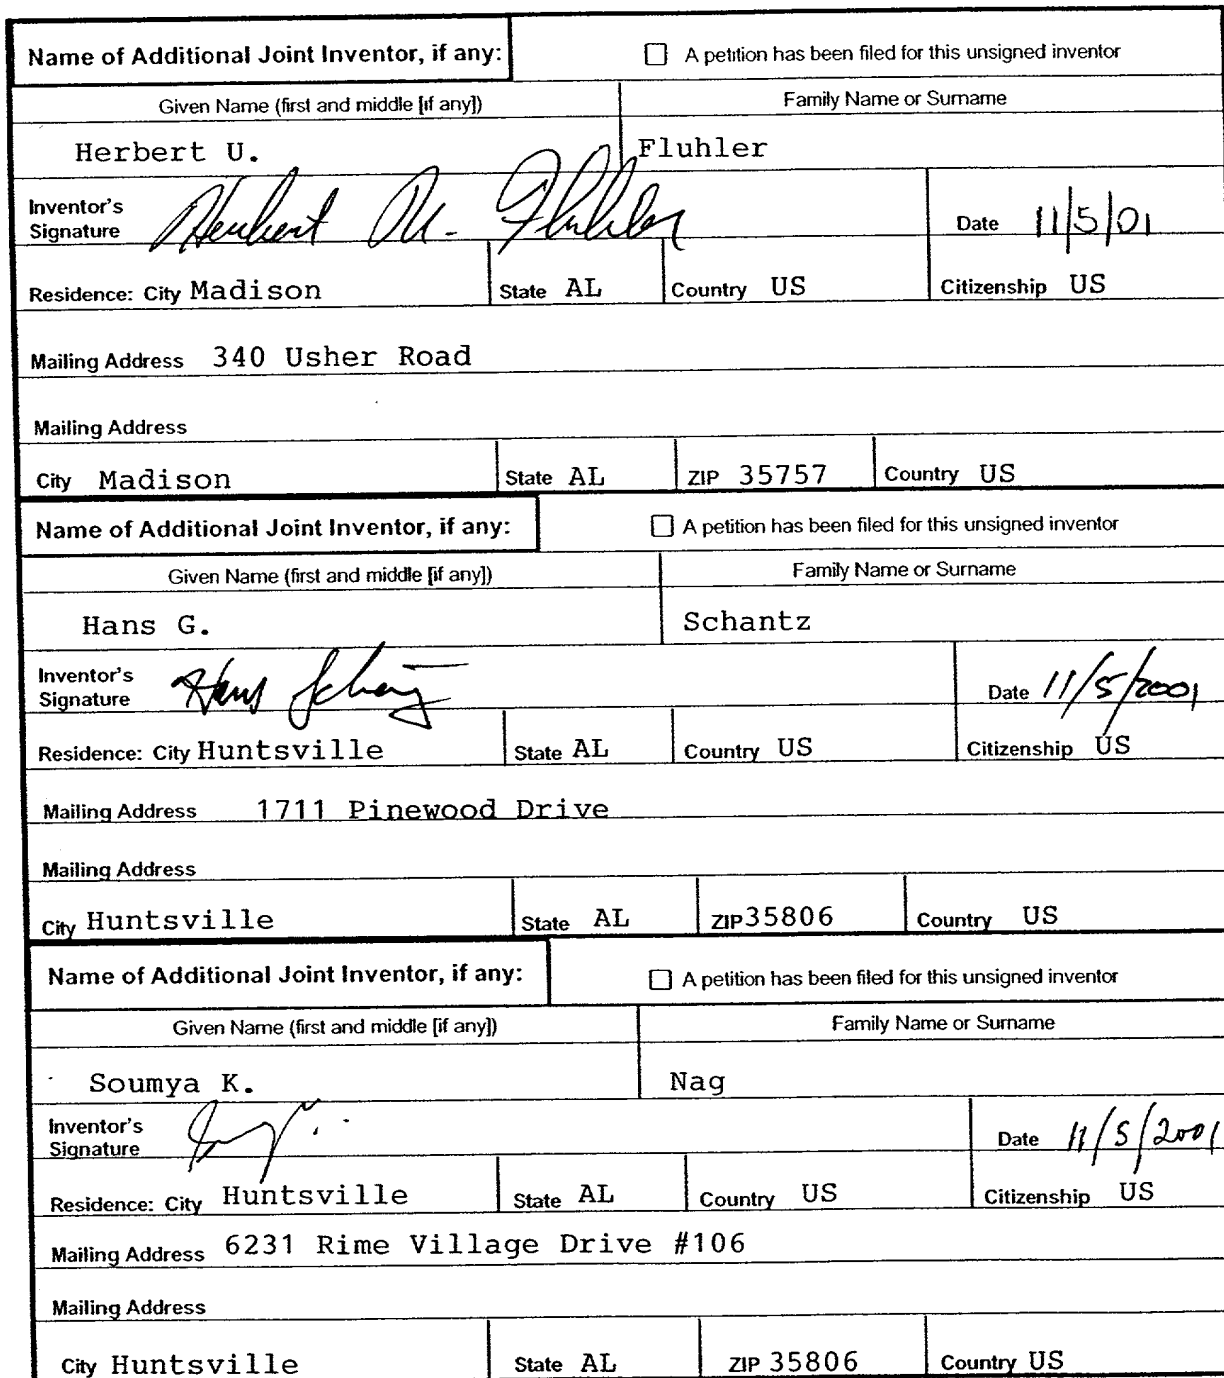 Name of Additional Joint Inventor, if any: A petition has been filed for this unsigned inventor
Given Name (first and middle [if any]) Family Name or Surname
Herbert U. Fluhler
Inventor's
Signature Herbert U. Fluhler Date 11/5/01
Residence: City Madison State AL Country US Citizenship US
Mailing Address 340 Usher Road
Mailing Address
City Madison State AL ZIP 35757 Country US
Name of Additional Joint Inventor, if any: A petition has been filed for this unsigned inventor
Given Name (first and middle [if any]) Family Name or Surname
Hans G. Schantz
Inventor's
Signature Hans Schantz Date 11/5/2001
Residence: City Huntsville State AL Country US Citizenship US
Mailing Address 1711 Pinewood Drive
Mailing Address
City Huntsville State AL ZIP 35806 Country US
Name of Additional Joint Inventor, if any: A petition has been filed for this unsigned inventor
Given Name (first and middle [if any]) Family Name or Surname
Soumya K. Nag
Inventor's
Signature Date 11/5/2001
Residence: City Huntsville State AL Country US Citizenship US
Mailing Address 6231 Rime Village Drive #106
Mailing Address
City Huntsville State AL ZIP 35806 Country US